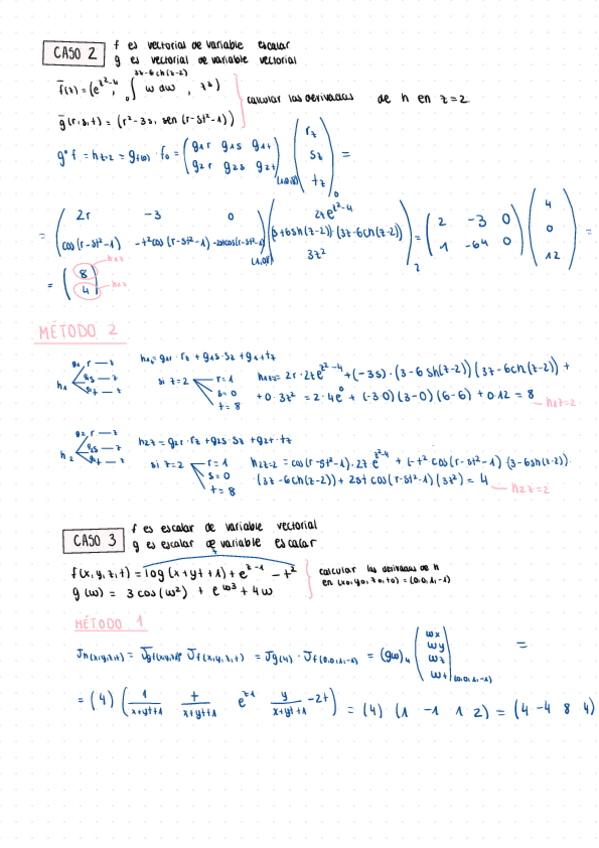 CASO 2
f es vectorial de variable escalar
g es vectorial de variable vectorial
f̄(z) = (e^(z²-4), ∫₀^(3z-6ch(z-2)) w dw, z³)
ḡ(r,s,t) = (r²-3s, sen(r-st²-1))
calcular las derivadas de h en z=2
g∘f = h z=2 = g f(0) · f0 = (g1r g1s g1t / g2r g2s g2t)(1,0,8) (rz / sz / tz)0 =
= (2r -3 0 / cos(r-st²-1) -t²cos(r-st²-1) -2stcos(r-st²-1))(1,0,8) (2ze^(z²-4) / (3+6sh(z-2))·(3z-6ch(z-2)) / 3z²)2 = (2 -3 0 / 1 -64 0) (4 / 0 / 12) =
= (8 / 4) h1z h2z
MÉTODO 2
h1 g1, r — z g1s — z g1t — z
h1z = g1r · rz + g1s · sz + g1t tz
si z=2 r=1 s=0 t=8
h1z=2 = 2r · 2ze^(z²-4) + (-3s) · (3-6sh(z-2)) (3z-6ch(z-2)) +
+ 0 · 3z² = 2·4e⁰ + (-3·0)(3-0)(6-6) + 0·12 = 8
h1z=2
h2 g2, r — z g2s — z g2t — z
h2z = g2r · rz + g2s · sz + g2t · tz
si z=2 r=1 s=0 t=8
h2z=2 = cos(r-st²-1) · 2z e^(z²-4) + (-t² cos(r-st²-1) · (3-6sh(z-2)) ·
· (3z-6ch(z-2)) + 2st cos(r-st²-1) (3z²) = 4
h2z=2
CASO 3
f es escalar de variable vectorial
g es escalar de variable escalar
f(x,y,z,t) = log(x+yt+1) + e^(z-1) - t²
g(w) = 3cos(w²) + e^(w3) + 4w
calcular las derivadas de h
en (x0,y0,z0,t0) = (0,0,1,-1)
MÉTODO 1
Jh(x,y,z,t) = Jg(f(x,y,z,t)) Jf(x,y,z,t) = Jg(4) · Jf(0,0,1,-1) = (gw)4 (wx / wy / wz / wt)(0,0,1,-1) =
= (4) (1/(x+yt+1) t/(x+yt+1) e^(z-1) y/(x+yt+1) -2t) = (4) (1 -1 1 2) = (4 -4 8 4)